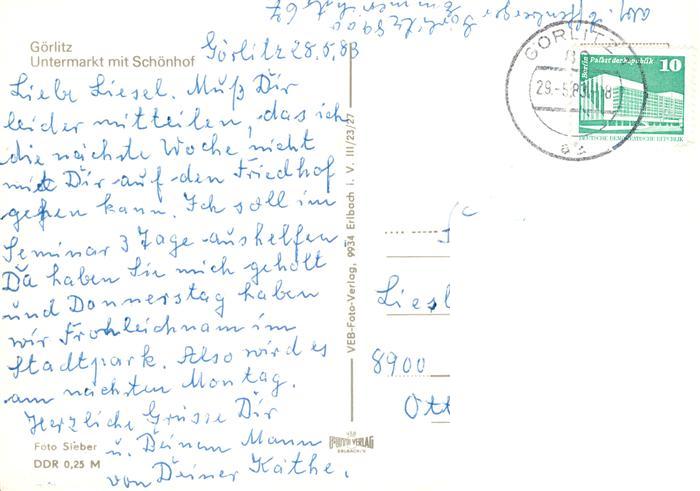 Görlitz
Untermarkt mit Schönhof
Görlitz 28.5.83
Liebe Liesel. Muß Dir
leider mitteilen, das ich
die nächste Woche nicht
mit Dir auf den Friedhof
gehen kann. Ich soll im
Seminar 3 Tage aushelfen
Da haben Sie mich geholt
und Donnerstag haben
wir Frohleichnam im
Stadtpark. Also wird es
am nächsten Montag.
Herzliche Grüsse Dir
u. Deinem Mann
von Deiner Käthe.
Foto Sieber
DDR 0,25 M
VEB-Foto-Verlag, 9934 Erlbach i. V. III/23/27
VEB
FOTO VERLAG
ERLBACH/V.
Abs.
Görlitz 8900
67
GÖRLITZ
29.-5.83.-18
Berlin Palast der Republik 10
DEUTSCHE DEMOKRATISCHE REPUBLIK
Liesl
8900
Ott